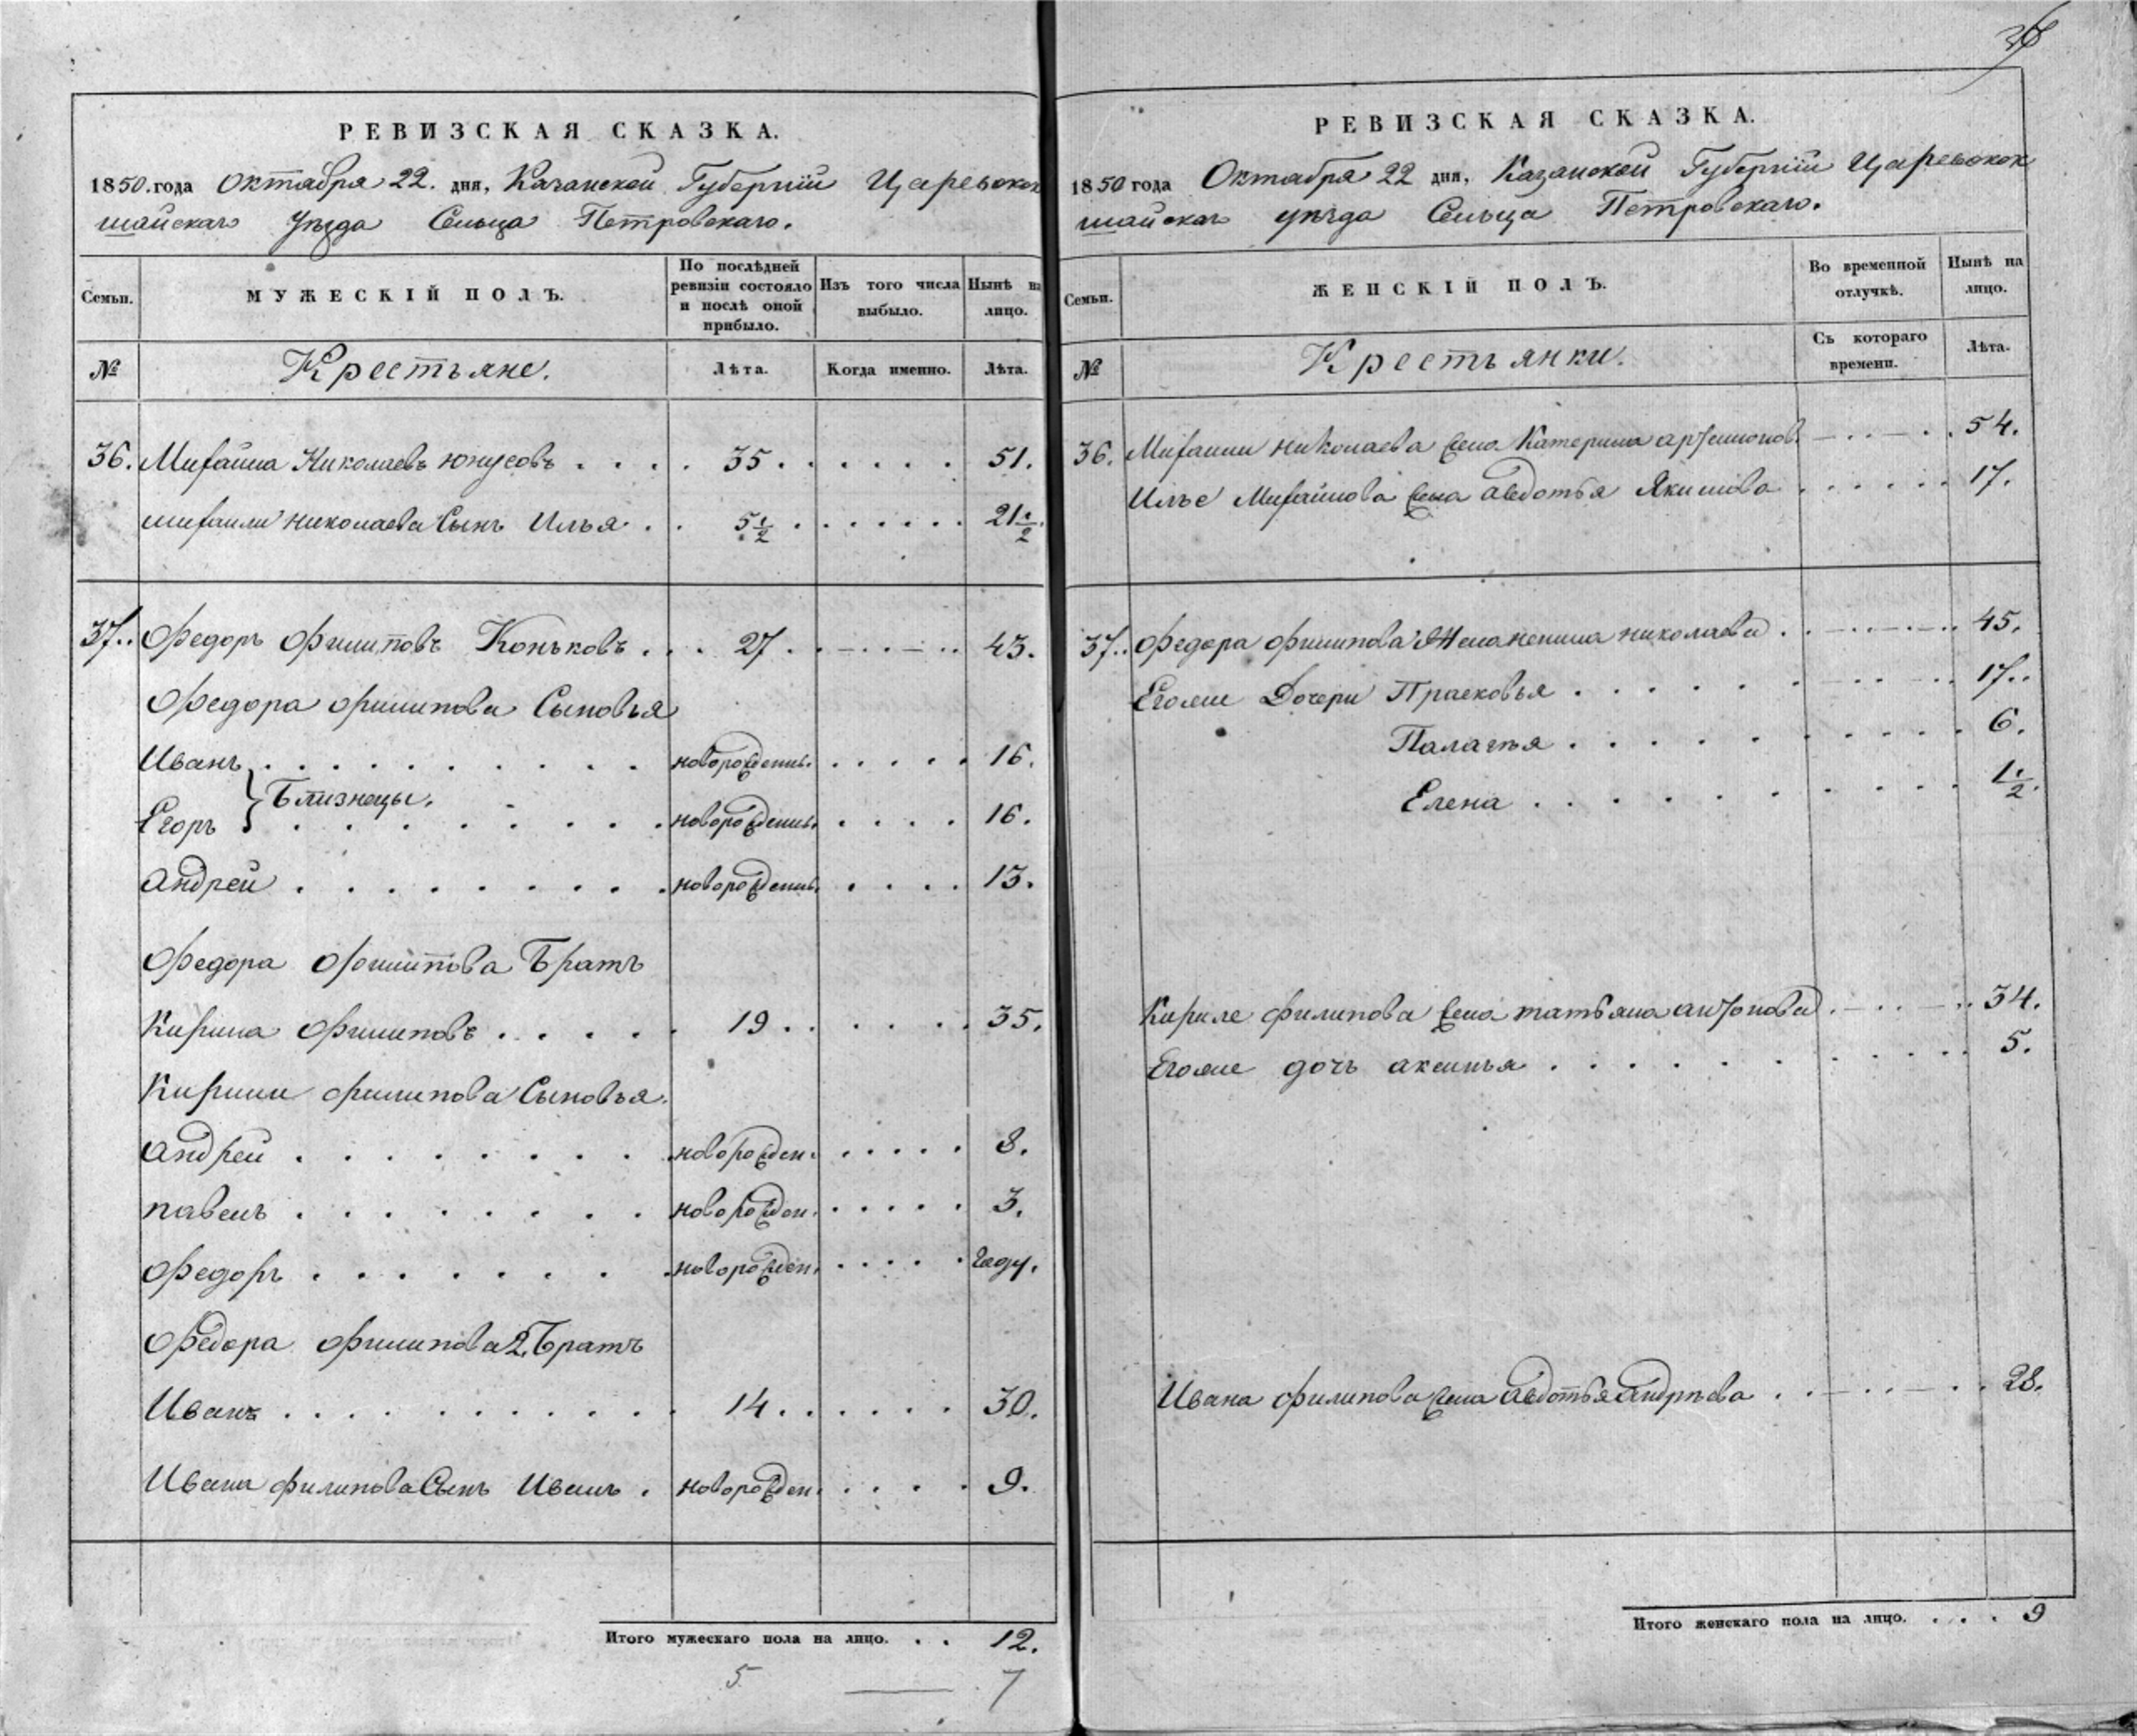 РЕВИЗСКАЯ СКАЗКА.
1850.года Октября 22. дня, Казанской Губернiи Царевокок
шайскаго Уѣзда Сельца Петровскаго.
Семьи.
МУЖЕСКІЙ ПОЛЪ.
По послѣдней ревизіи состояло и послѣ оной прибыло.
Изъ того числа выбыло.
Нынѣ на лицо.
№
Крестьяне.
Лѣта.
Когда именно.
Лѣта.
36. Михайла Николаевъ Юнусовъ . . . . 35 . . . . . . 51.
михаили николаева Сынъ Илья . . 5 1/2 . . . . . . . 21 1/2.
37.. Федоръ Филиповъ Коньковъ . . . 27 . . — . . — . . 43.
Федора Филипова Сыновья
Иванъ . . . . . . . . . новорожденъ. . . . . . 16.
} Близнецы.
Егоръ . . . . . . . . . новорожденъ. . . . . 16.
Андрей . . . . . . . . . новорожденъ. . . . . 13.
Федора Филипова Братъ
Кирила Филиповъ . . . . . 19 . . . . . . 35.
Кирили филипова Сыновья.
Андрей . . . . . . . . новорожден. . . . . . 8.
павелъ . . . . . . . . новорожден. . . . . . 3.
Федоръ . . . . . . . . новорожден. . . . . . году.
Федора Филипова 2. Братъ
Иванъ . . . . . . . . . . . 14 . . . . . . 30.
Ивана филипова Сынъ Иванъ . новорожден. . . . . 9.
Итого мужескаго пола на лицо. . . 12.
5 — 7
РЕВИЗСКАЯ СКАЗКА.
1850 года Октября 22 дня, Казанской Губернiи Царевокок
шайскаго уѣзда Сельца Петровскаго.
Семьи.
ЖЕНСКІЙ ПОЛЪ.
Во временной отлучкѣ.
Нынѣ на лицо.
№
Крестьянки.
Съ котораго времени.
Лѣта.
36. Михаили николаева жена Катерина — . . — . . 54.
Илье Михайлова жена авдотья Якимова . . . . . . 17.
37.. Федора Филипова жена николаева . . — . . . — . . 45.
Егоже Дочери Прасковья . . . . . . — . . — . . 17..
Палагѣя . . . . . . . . . . 6.
Елена . . . . . . . . . . . 1 1/2.
Кириле филипова жена татьяна . — . . — . . 34.
Егоже дочь аксинья . . . . . . . . . . . 5.
Ивана филипова жена Авдотья Андрѣева . . — . . — . . 28.
Итого женскаго пола на лицо. . . . 9